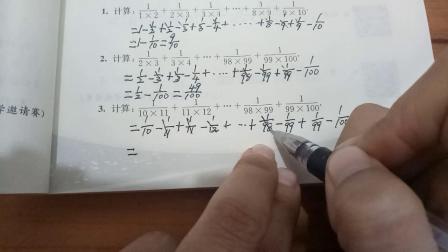 1. 计算: 1/1×2 + 1/2×3 + 1/3×4 + ⋯ + 1/8×9 + 1/9×10.
=1-1/2+1/2-1/3+1/3-1/4+⋯⋯+1/8-1/9+1/9-1/10
=1-1/10=9/10
2. 计算: 1/2×3 + 1/3×4 + ⋯ + 1/98×99 + 1/99×100.
=1/2-1/3+1/3-1/4+⋯+1/98-1/99+1/99-1/100
=1/2-1/100=49/100
学邀请赛)
3. 计算: 1/10×11 + 1/11×12 + ⋯ + 1/98×99 + 1/99×100.
=1/10-1/11+1/11-1/12+⋯+1/98-1/99+1/99-1/100
=